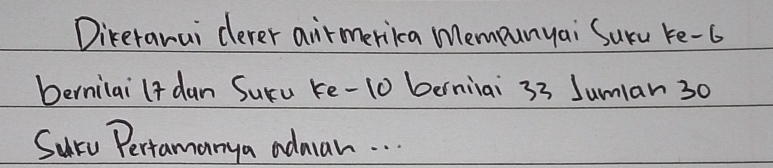 Diketahui deret aritmetika mempunyai Suku ke-6
bernilai 17 dan Suku ke-10 bernilai 33 Jumlah 30
Suku Pertamanya adalah ...